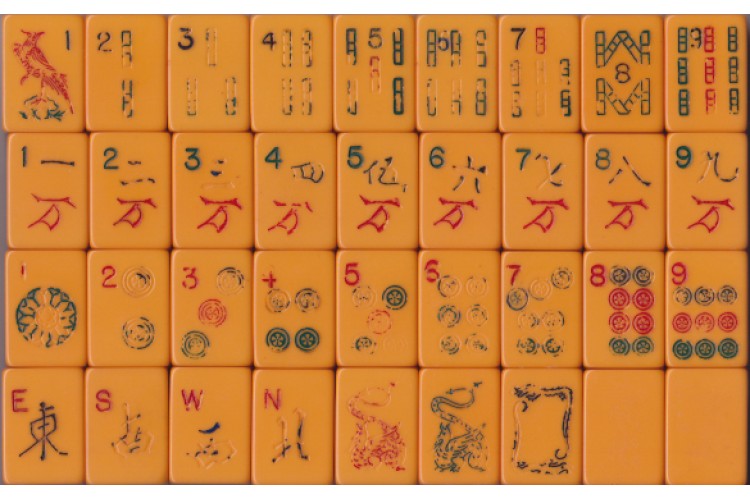 1 2 3 4 5 6 7 8 9
1 一 2 二 3 三 4 四 5 伍 6 六 7 七 8 八 9 九
万 万 万 万 万 万 万 万 万
1 2 3 4 5 6 7 8 9
E S W N
東 南 西 北